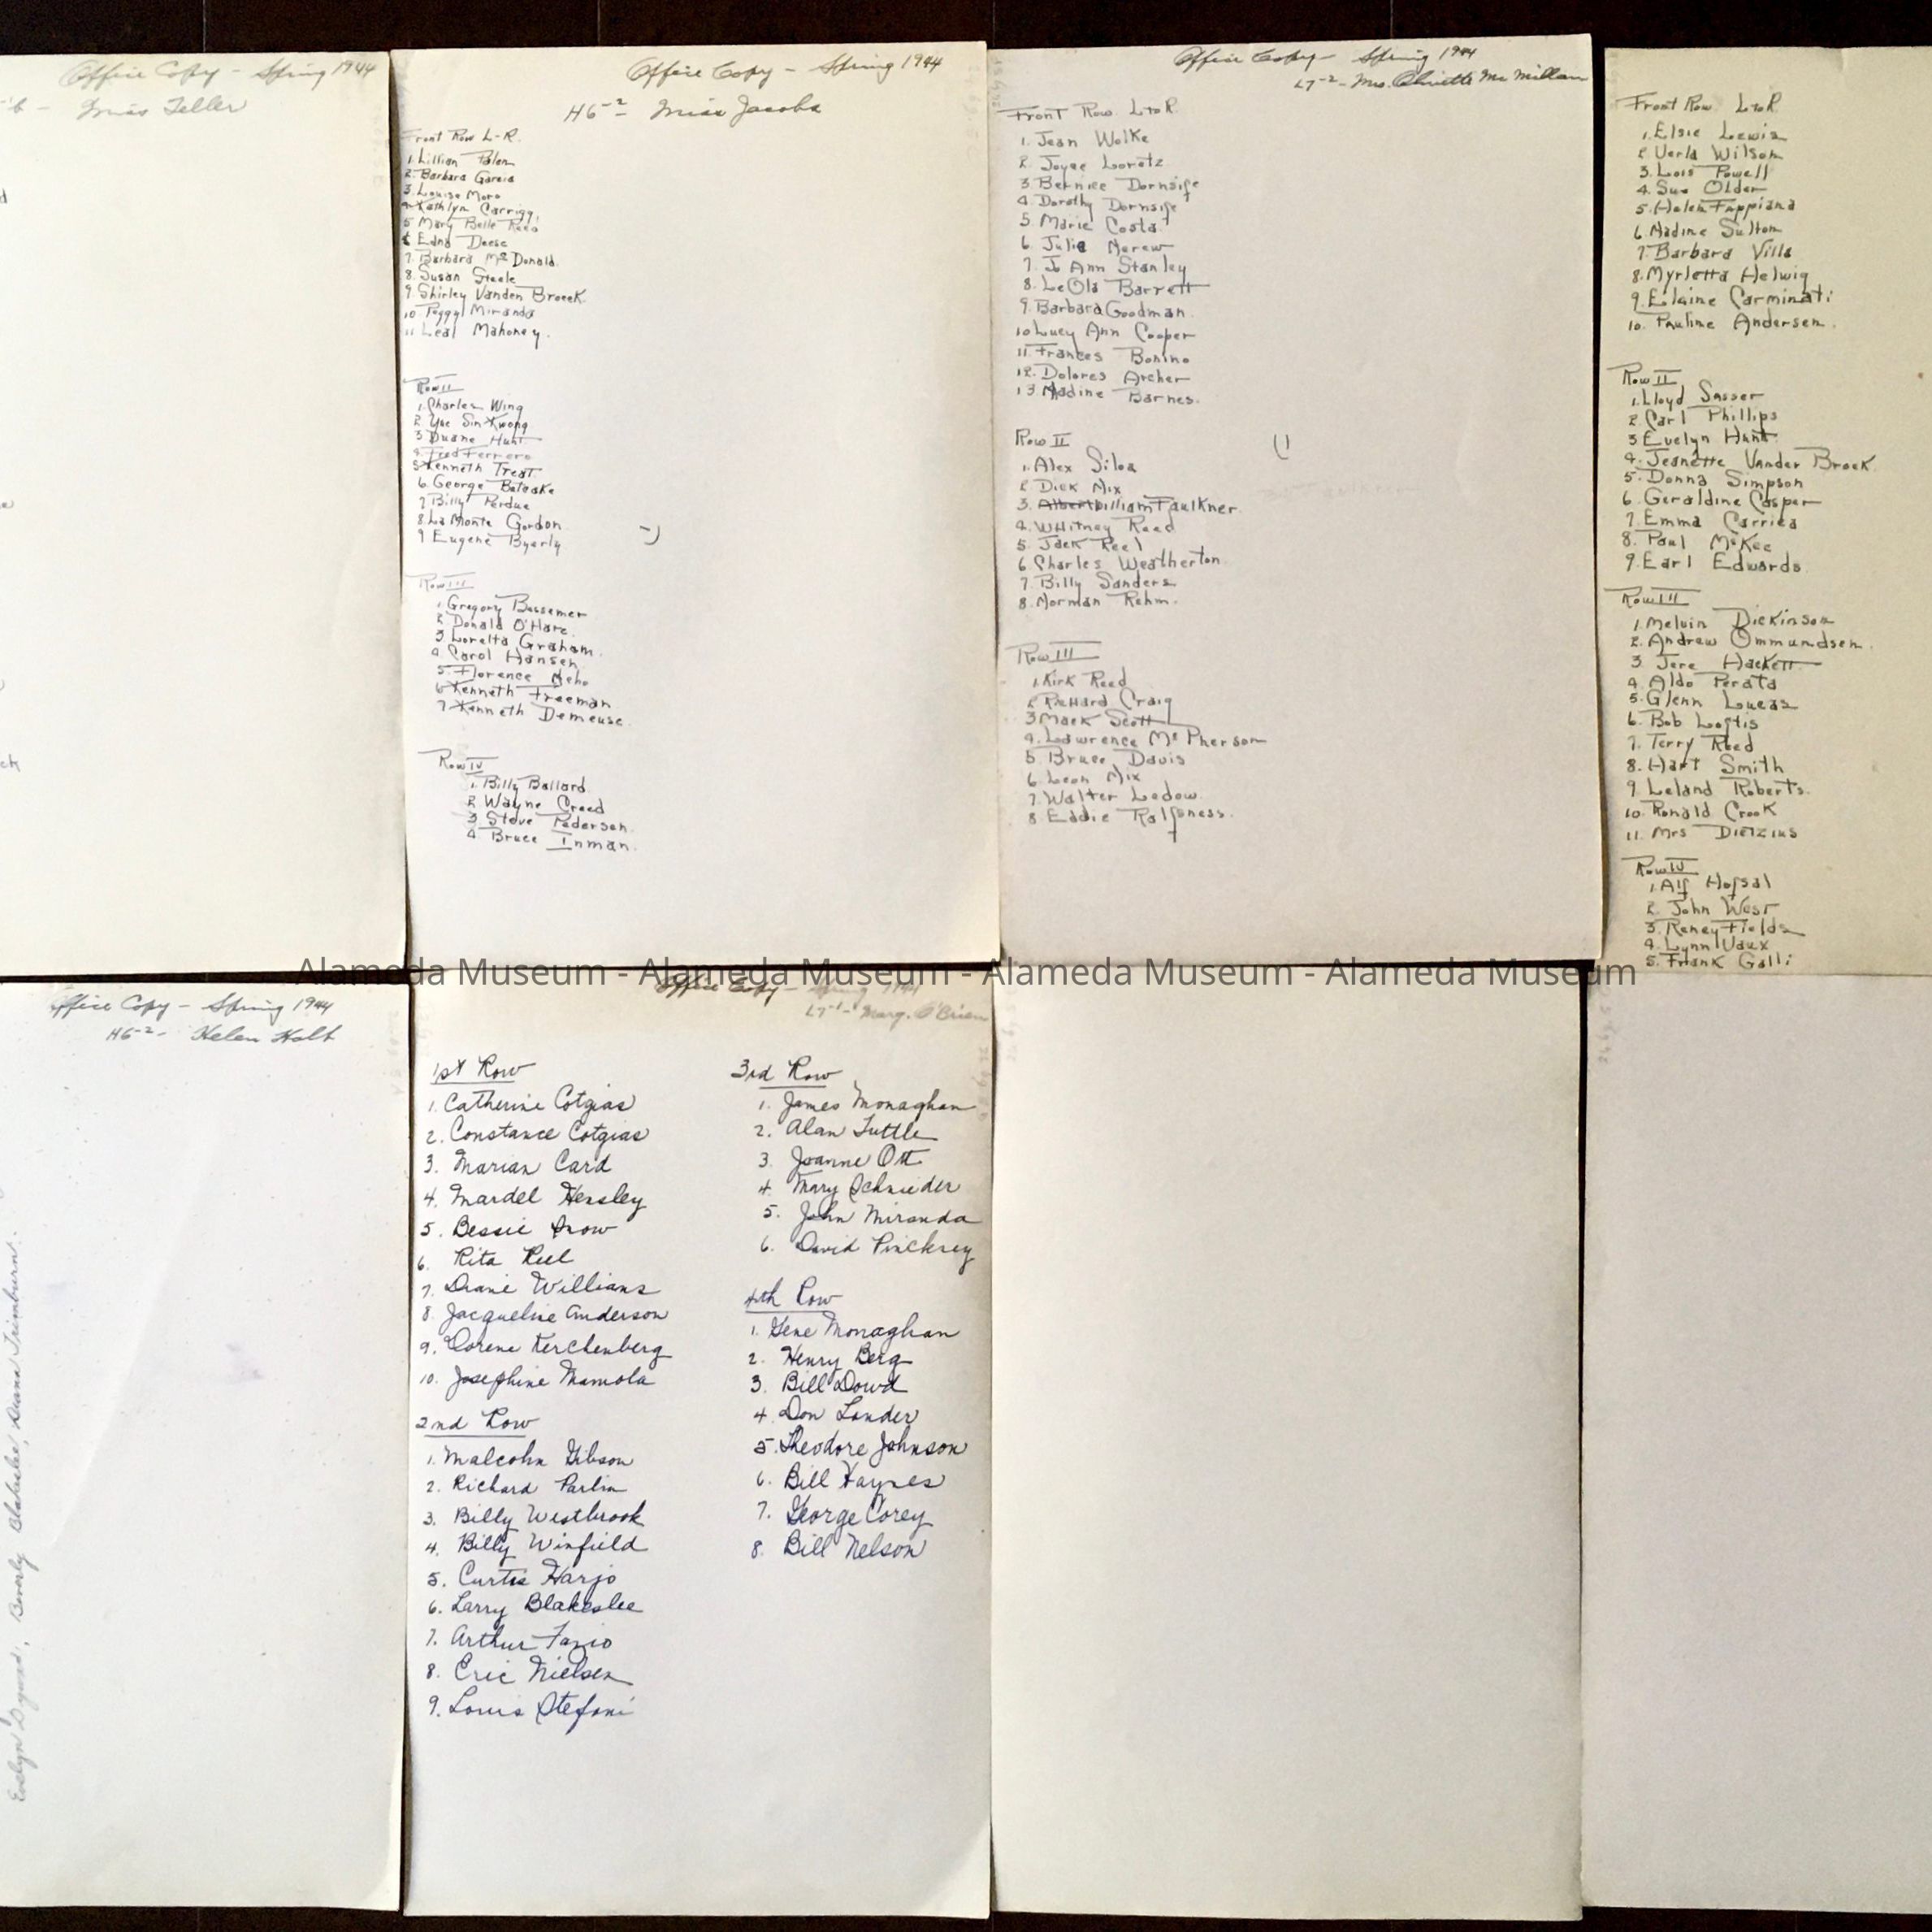 Office Copy - Spring 1944
Miss Teller
Office Copy - Spring 1944
H6-2 Miss Jacobs
Front Row L-R.
1. Lillian
2. Barbara Garcia
3. Louise Moro
4. Kathlyn Carrigg
5 Mary Belle Reed
6 Edna Deese
7. Barbara McDonald.
8. Susan Steele
9. Shirley Vanden Broeck.
10. Peggy Miranda
11 Leal Mahoney.
Row II
1. Charles Wing
2. Yue Sin Kwong
3 Duane Hunt
4. Fred Ferrero
5 Kenneth Treat
6. George
7. Billy Perdue
8. La Monte Gordon
9 Eugene Byerly
Row III
1. Gregory Bessemer
2. Donald O'Hare.
3. Loretta Graham.
4. Carol Hansen
5. Florence
6 Kenneth Freeman
7 Kenneth Demeuse.
Row IV
1. Billy Ballard
2. Wayne Creed
3. Steve Pedersen
4. Bruce Inman.
Office Copy - Spring 1944
L7-2 - Mrs. Olivette McMillan
Front Row L to R.
1. Jean Wolke
2. Joyce Loretz
3. Bernice Dornsife
4. Dorothy Dornsife
5 Marie Costa
6. Julie
7. Jo Ann Stanley
8. LeOla Barrett
9. Barbara Goodman.
10 Lucy Ann Cooper
11. Frances Bonino
12. Dolores Archer
13. Nadine Barnes.
Row II
1. Alex Silva
2. Dick Mix
3. Albert William Faulkner.
4. Whitney Reed
5. Jack Reel
6 Charles Weatherton
7. Billy Sanders
8. Norman Rehm.
Row III
1. Kirk Reed
2 Richard Craig
3 Mack Scott
4. Lawrence McPherson
5. Bruce Davis
6. Leon Mix
7. Walter Ledow.
8 Eddie Ralfsness.
Front Row L to R.
1. Elsie Lewis
2. Verla Wilson
3. Lois Powell
4. Sue Older
5. Helen Fappiano
6. Nadine Sulton
7. Barbara Villa
8. Myrletta Helwig
9. Elaine Carminati
10. Pauline Andersen.
Row II
1. Lloyd Sasser
2. Carl Phillips
3 Evelyn Hunt
4. Jeanette Vander Broek.
5. Donna Simpson
6. Geraldine Casper
7. Emma Carrica
8. Paul McKee
9. Earl Edwards.
Row III
1. Melvin Dickinson
2. Andrew Ommundsen.
3. Jere Hackett
4. Aldo Perata
5. Glenn Loucas
6. Bob Loftis
7. Terry Reed
8. Hart Smith
9. Leland Roberts.
10. Ronald Crook
11. Mrs Dietzius
Row IV
1. Alf Hofsal
2. John West
3. Reney Fields
4. Lynn Vaux
5. Frank Galli
Alameda Museum - Alameda Museum - Alameda Museum - Alameda Museum
Office Copy - Spring 1944
H6-2- Helen Holt
Evelyn , Beverly Blakeslee, Diana Trimburn.
Office Copy - Spring 1944
L7-1- Marg. O'Brien
1st Row
1. Catherine Cotgias
2. Constance Cotgias
3. Marian Card
4. Mardel Hensley
5. Bessie Snow
6. Rita Reel
7. Diane Williams
8. Jacqueline Anderson
9. Dorene Kerchenberg
10. Josephine Mamola
2nd Row
1. Malcohn Gibson
2. Richard Parlin
3. Billy Westbrook
4. Billy Winfield
5. Curtis Harjo
6. Larry Blakeslee
7. Arthur Fazio
8. Eric Nielsen
9. Louis Stefani
3rd Row
1. James Monaghan
2. Alan Tuttle
3. Joanne Ott
4. Mary Schnieder
5. John Miranda
6. David Pinckney
4th Row
1. Gene Monaghan
2. Henry Berg
3. Bill Dowd
4. Don Lander
5. Theodore Johnson
6. Bill Haynes
7. George Corey
8. Bill Nelson